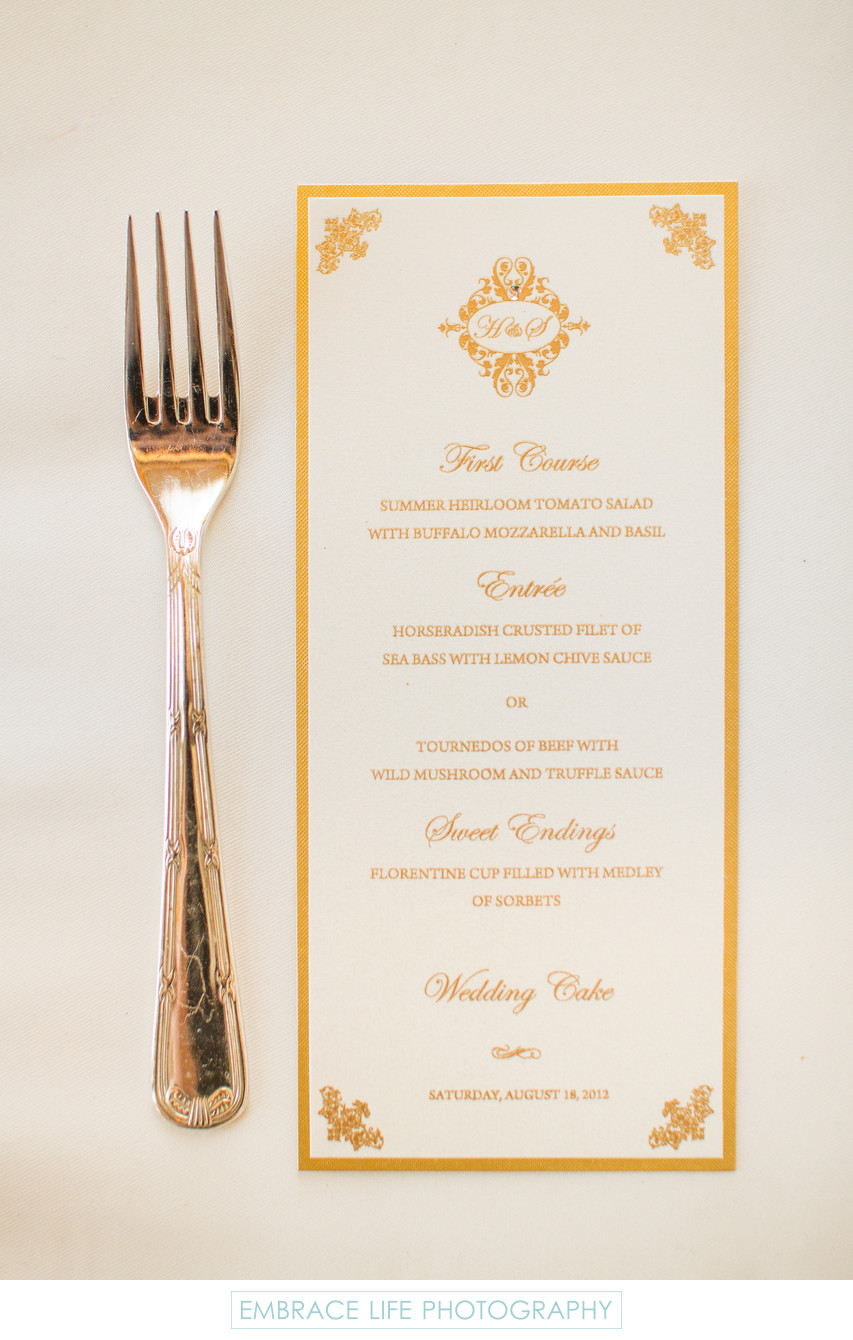 H&S
First Course
SUMMER HEIRLOOM TOMATO SALAD
WITH BUFFALO MOZZARELLA AND BASIL
Entrée
HORSERADISH CRUSTED FILET OF
SEA BASS WITH LEMON CHIVE SAUCE
OR
TOURNEDOS OF BEEF WITH
WILD MUSHROOM AND TRUFFLE SAUCE
Sweet Endings
FLORENTINE CUP FILLED WITH MEDLEY
OF SORBETS
Wedding Cake
SATURDAY, AUGUST 18, 2012
EMBRACE LIFE PHOTOGRAPHY